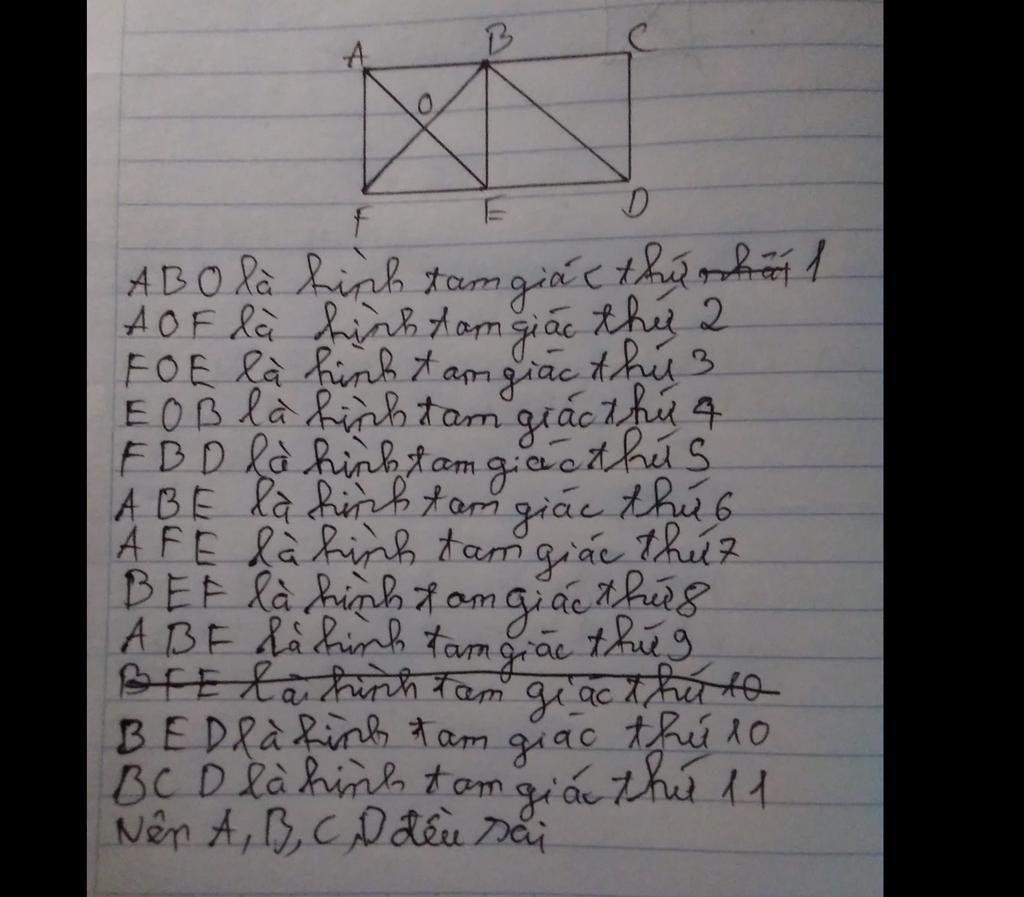 A B C
O
F E D
ABO là hình tam giác thứ nhất 1
AOF là hình tam giác thứ 2
FOE là hình tam giác thứ 3
EOB là hình tam giác thứ 4
FBD là hình tam giác thứ 5
ABE là hình tam giác thứ 6
AFE là hình tam giác thứ 7
BEF là hình tam giác thứ 8
ABF là hình tam giác thứ 9
BFE là hình tam giác thứ 10
BED là hình tam giác thứ 10
BCD là hình tam giác thứ 11
Nên A, B, C, D đều sai